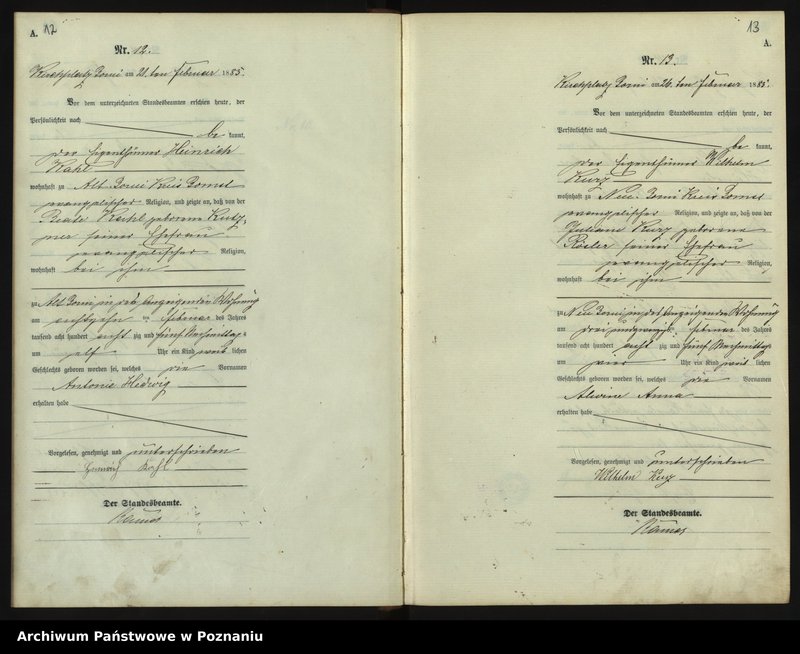 A.
12
Nr. 12.
Kirchplatz Borui am 21. ten Februar 1885.
Vor dem unterzeichneten Standesbeamten erschien heute, der
Persönlichkeit nach
be kannt,
der Eigenthümer Heinrich
Kahl
wohnhaft zu Alt Borui Kreis Bomst
evangelischer Religion, und zeigte an, daß von der
Beate Kahl geborene
seiner Ehefrau
evangelischer Religion,
wohnhaft bei ihm
zu Alt Borui in des Anzeigenden Wohnung
am achtzehn ten Februar des Jahres
tausend acht hundert acht zig und fünf Nachmittags
um elf Uhr ein Kind weib lichen
Geschlechts geboren worden sei, welches die Vornamen
Antonie Hedwig
erhalten habe
Vorgelesen, genehmigt und unterschrieben
Heinrich Kahl
Der Standesbeamte.
13
A.
Nr. 13.
Kirchplatz Borui am 26. ten Februar 1885.
Vor dem unterzeichneten Standesbeamten erschien heute, der
Persönlichkeit nach
be kannt,
der Eigenthümer Wilhelm
Kurz
wohnhaft zu Neu Borui Kreis Bomst
evangelischer Religion, und zeigte an, daß von der
Juliane Kurz geborene
Rösler seiner Ehefrau
evangelischer Religion,
wohnhaft bei ihm
zu Neu Borui in des Anzeigenden Wohnung
am dreiundzwanzig ten Februar des Jahres
tausend acht hundert acht zig und fünf Nachmittags
um vier Uhr ein Kind weib lichen
Geschlechts geboren worden sei, welches die Vornamen
Alwine Anna
erhalten habe
Vorgelesen, genehmigt und unterschrieben
Wilhelm Kurz
Der Standesbeamte.
Archiwum Państwowe w Poznaniu